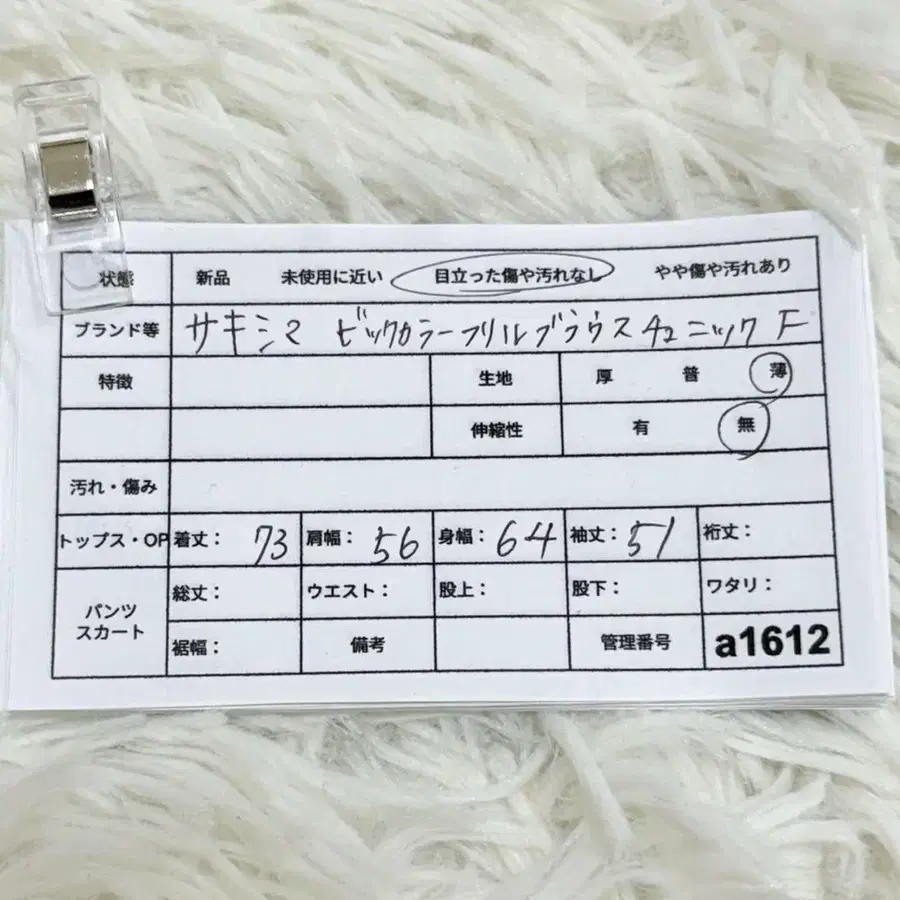 状態 新品 未使用に近い 目立った傷や汚れなし やや傷や汚れあり
ブランド等 サキシマ ビックカラーフリルブラウスチュニック F
特徴 生地 厚 普 薄
伸縮性 有 無
汚れ・傷み
トップス・OP 着丈: 73 肩幅: 56 身幅: 64 袖丈: 51 裄丈:
パンツ スカート
総丈: ウエスト: 股上: 股下: ワタリ:
裾幅: 備考 管理番号 a1612